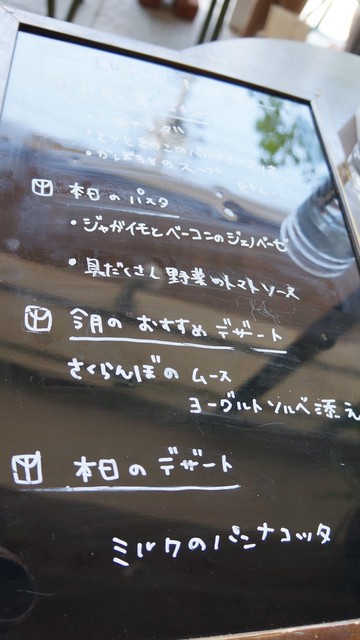 ・かぼちゃのスープ
本日のパスタ
・ジャガイモとベーコンのジェノベーゼ
・具だくさん野菜のトマトソース
今月のおすすめデザート
さくらんぼのムース
ヨーグルトソルベ添え
本日のデザート
ミルクのパンナコッタ